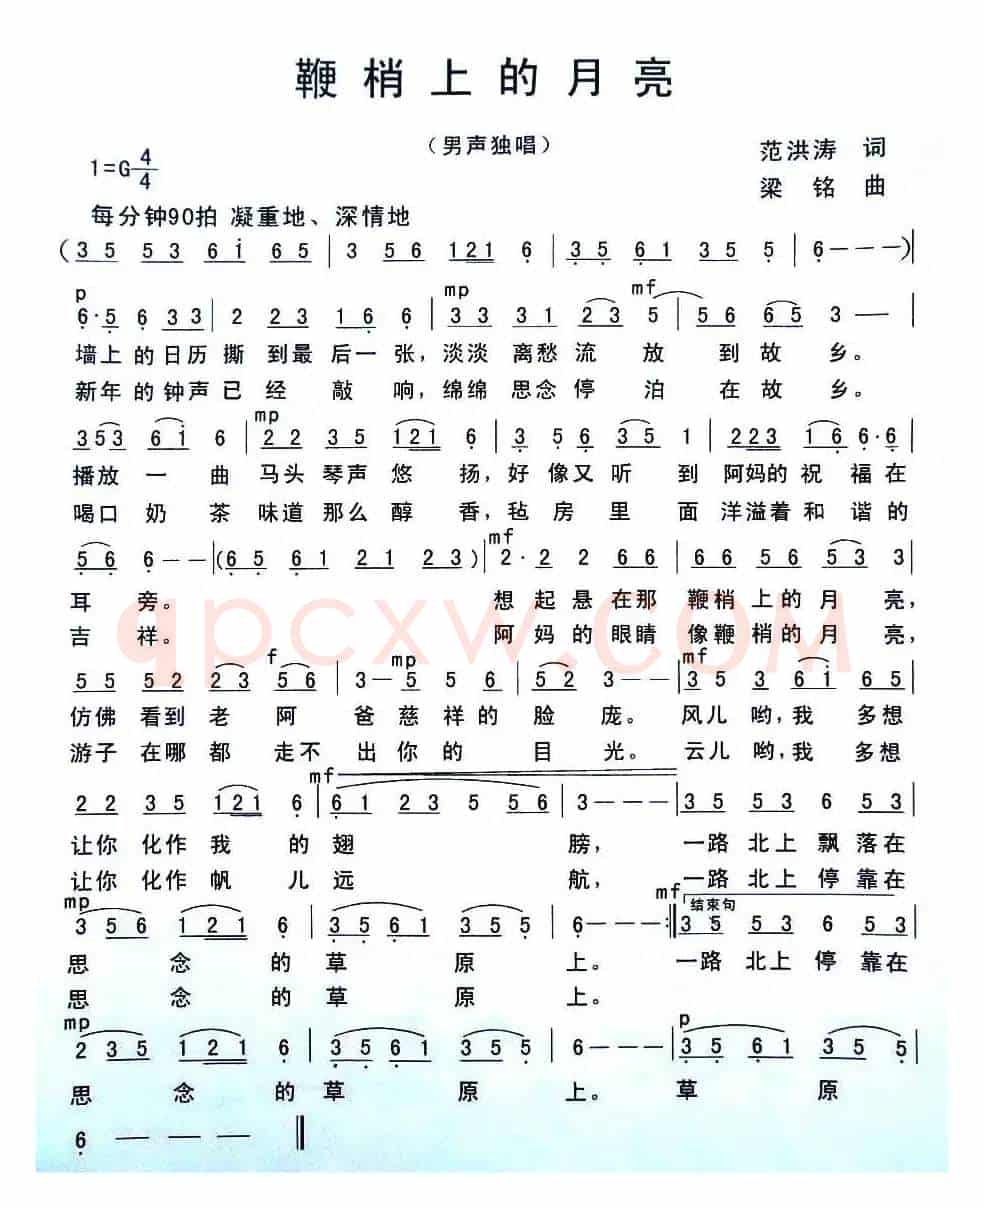 鞭梢上的月亮
（男声独唱）
1=G 4/4
范洪涛 词
梁铭 曲
每分钟90拍 凝重地、深情地
(3 5 5 3 6 i 6 5 | 3 5 6 1 2 1 6 | 3 5 6 1 3 5 5 | 6 — — — )|
p mp mf
6·5 6 3 3 | 2 2 3 1 6 6 | 3 3 3 1 2 3 5 | 5 6 6 5 3 — |
墙上的日历撕到最后一张，淡淡离愁流放到故乡。
新年的钟声已经敲响，绵绵思念停泊在故乡。
mp
3 5 3 6 i 6 | 2 2 3 5 1 2 1 6 | 3 5 6 3 5 1 | 2 2 3 1 6 6·6 |
播放一曲马头琴声悠扬，好像又听到阿妈的祝福在
喝口奶茶味道那么醇香，毡房里面洋溢着和谐的
mf
5 6 6 — — |(6 5 6 1 2 1 2 3 )| 2· 2 2 6 6 | 6 6 5 6 5 3 3 |
耳旁。想起悬在那鞭梢上的月亮，
吉祥。阿妈的眼睛像鞭梢的月亮，
f mp mf
5 5 5 2 2 3 5 6 | 3 — 5 5 6 | 5 2 3 — — | 3 5 3 6 i 6 5 |
仿佛看到老阿爸慈祥的脸庞。风儿哟，我多想
游子在哪都走不出你的目光。云儿哟，我多想
mf
2 2 3 5 1 2 1 6 | 6 1 2 3 5 5 6 | 3 — — — | 3 5 5 3 6 5 3 |
让你化作我的翅膀，一路北上飘落在
让你化作帆儿远航，一路北上停靠在
mp mf 结束句
3 5 6 1 2 1 6 | 3 5 6 1 3 5 5 | 6 — — — :‖ 3 5 5 3 6 5 3 |
思念的草原上。一路北上停靠在
思念的草原上。
mp p
2 3 5 1 2 1 6 | 3 5 6 1 3 5 5 | 6 — — — | 3 5 6 1 3 5 5 |
思念的草原上。草原
6 — — — ‖
qpcxw.com